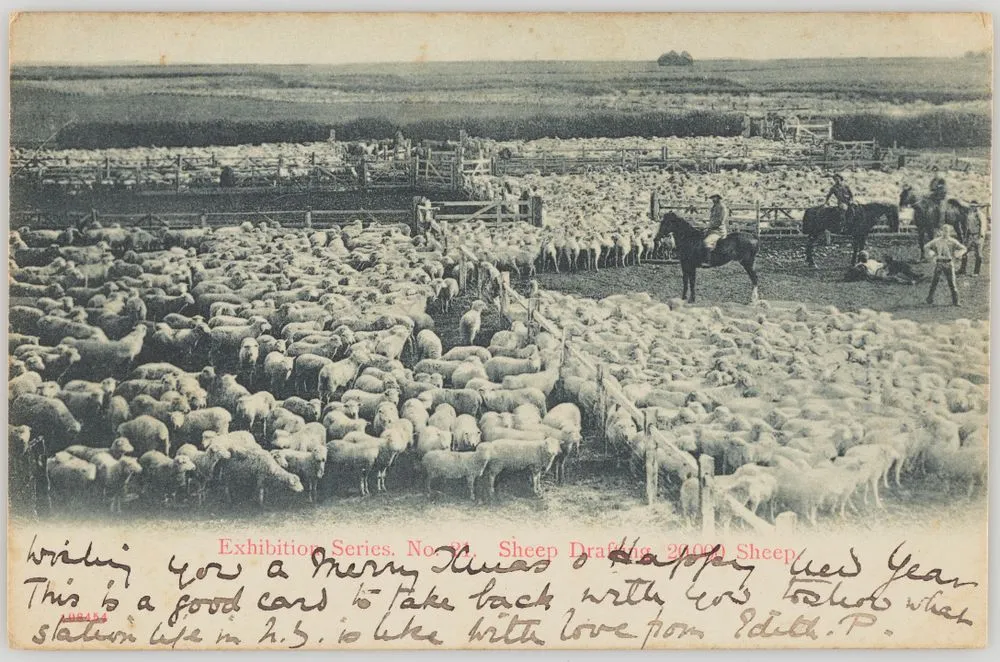 Exhibition Series. No. 21. Sheep Drafting, 20,000 Sheep.
wishing you a Merry Xmas & Happy New Year
This is a good card to take back with you to shew what
108454
station life in N.Z. is like with love from Edith. P.